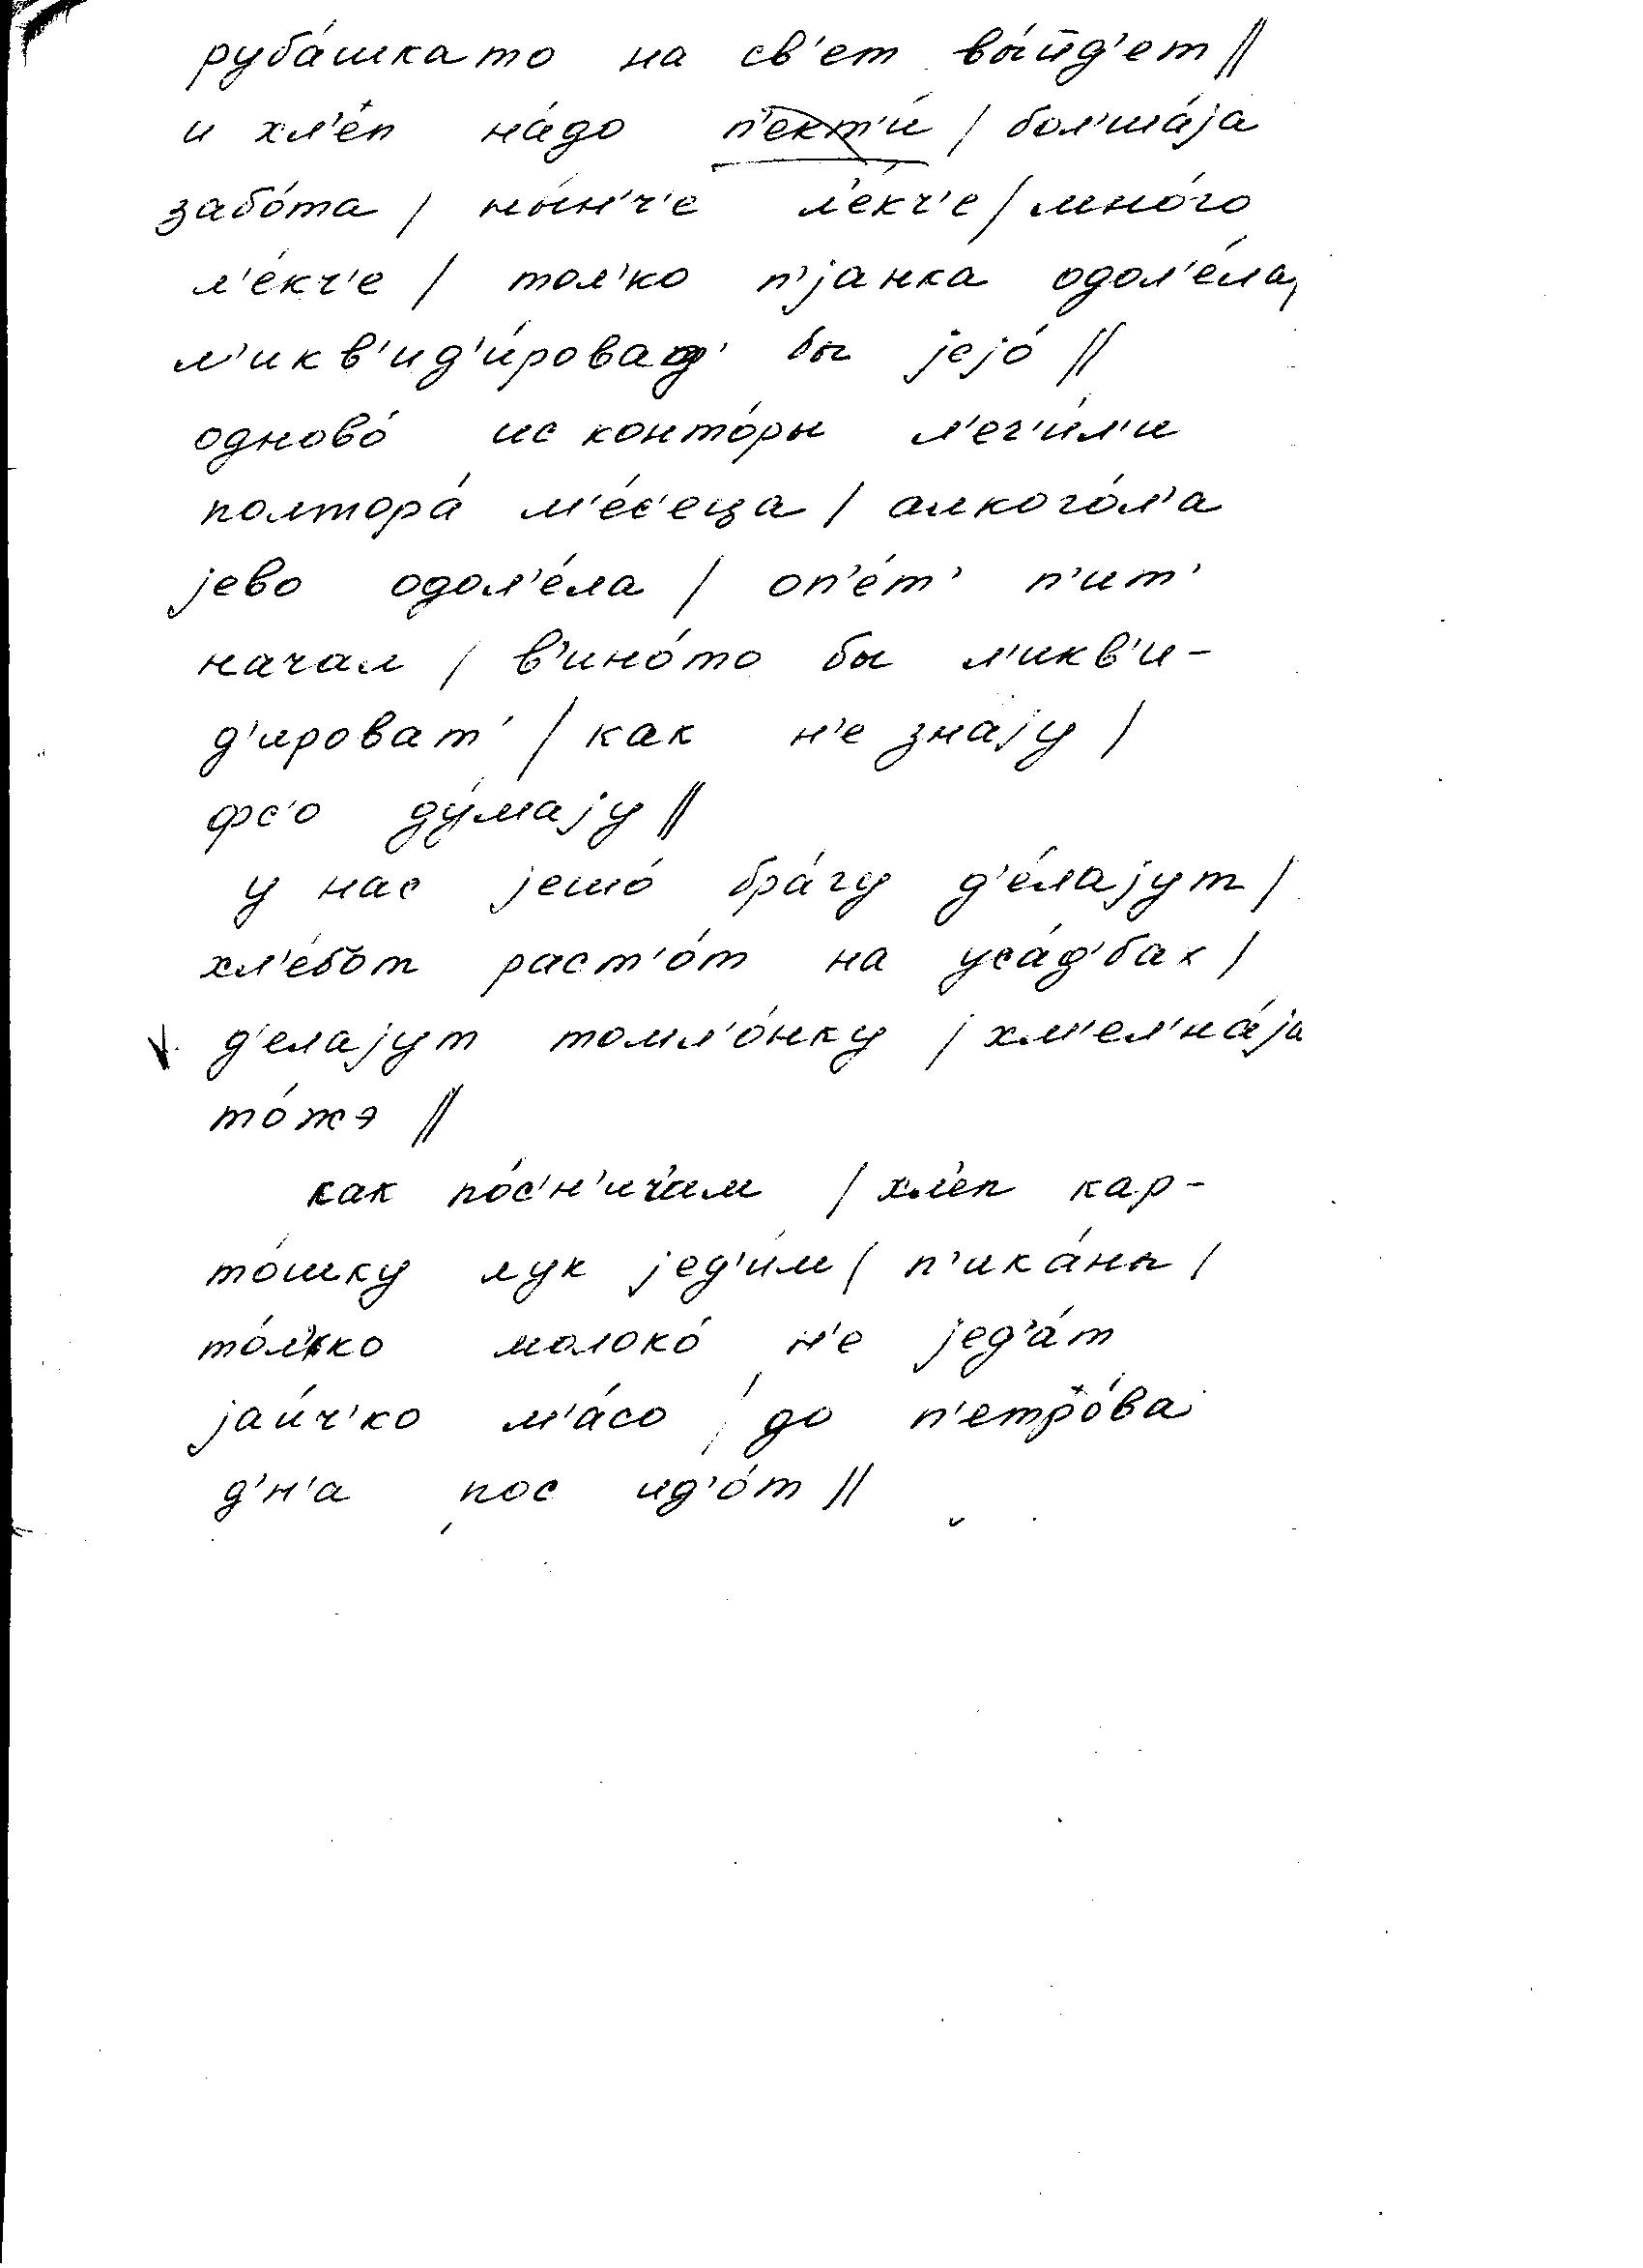 руба́шкато на св'ет вы́йд'ет //
и хл'е́п на́до п'ект'и́ / бол'ша́jа
забо́та / ны́н'ч'е л'е́кч'е / мно́го
л'е́кч'е / тол'ко п'jанка одол'е́ла,
л'икв'ид'и́ровад' бы jejо́ //
одново́ ис конто́ры л'еч'и́л'и
полтора́ м'е́с'еца / алкого́л'а
jево одол'е́ла / оп'е́т' п'ит'
начал / в'ино́то бы л'икв'и-
д'ироват' / как н'е знаjу /
фс'о ду́маjу //
у нас jешо́ бра́гу д'е́лаjут /
хл'е́бот раст'о́т на уса́д'бах /
д'елаjут томл'о́нку / хм'ел'на́jа
то́жэ //
как по́с'н'ичам / хл'еп кар-
то́шку лук jед'и́м / п'ика́ны /
то́л'ко молоко́ н'е jед'а́т
jаи́ч'ко м'а́со / до п'етро́ва
д'н'а пос ид'о́т //